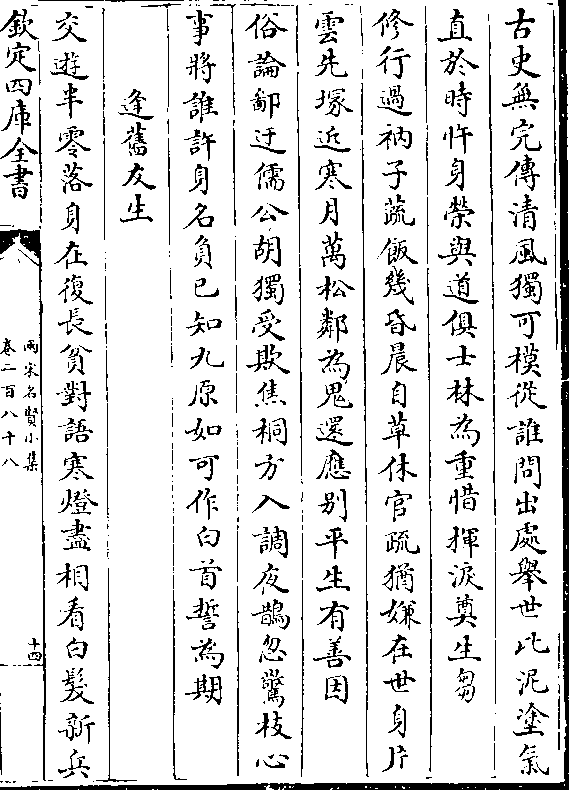 古史無完傳清風獨可模從誰問出處舉世此泥塗氣
直於時忤身榮與道俱士林為重惜揮淚奠生芻
修行過衲子蔬飯幾昏晨自草休官疏猶嫌在世身片
雲先塚近寒月萬松鄰為鬼還應别平生有善因
俗論鄙迂儒公胡獨受欺焦桐方入調夜鵲忽驚枝心
事將誰許身名負已知九原如可作白首誓為期
逢舊友生
交遊半零落身在復長貧對語寒燈盡相看白髮新兵
欽定四庫全書
兩宋名賢小集
卷二百八十八
十四